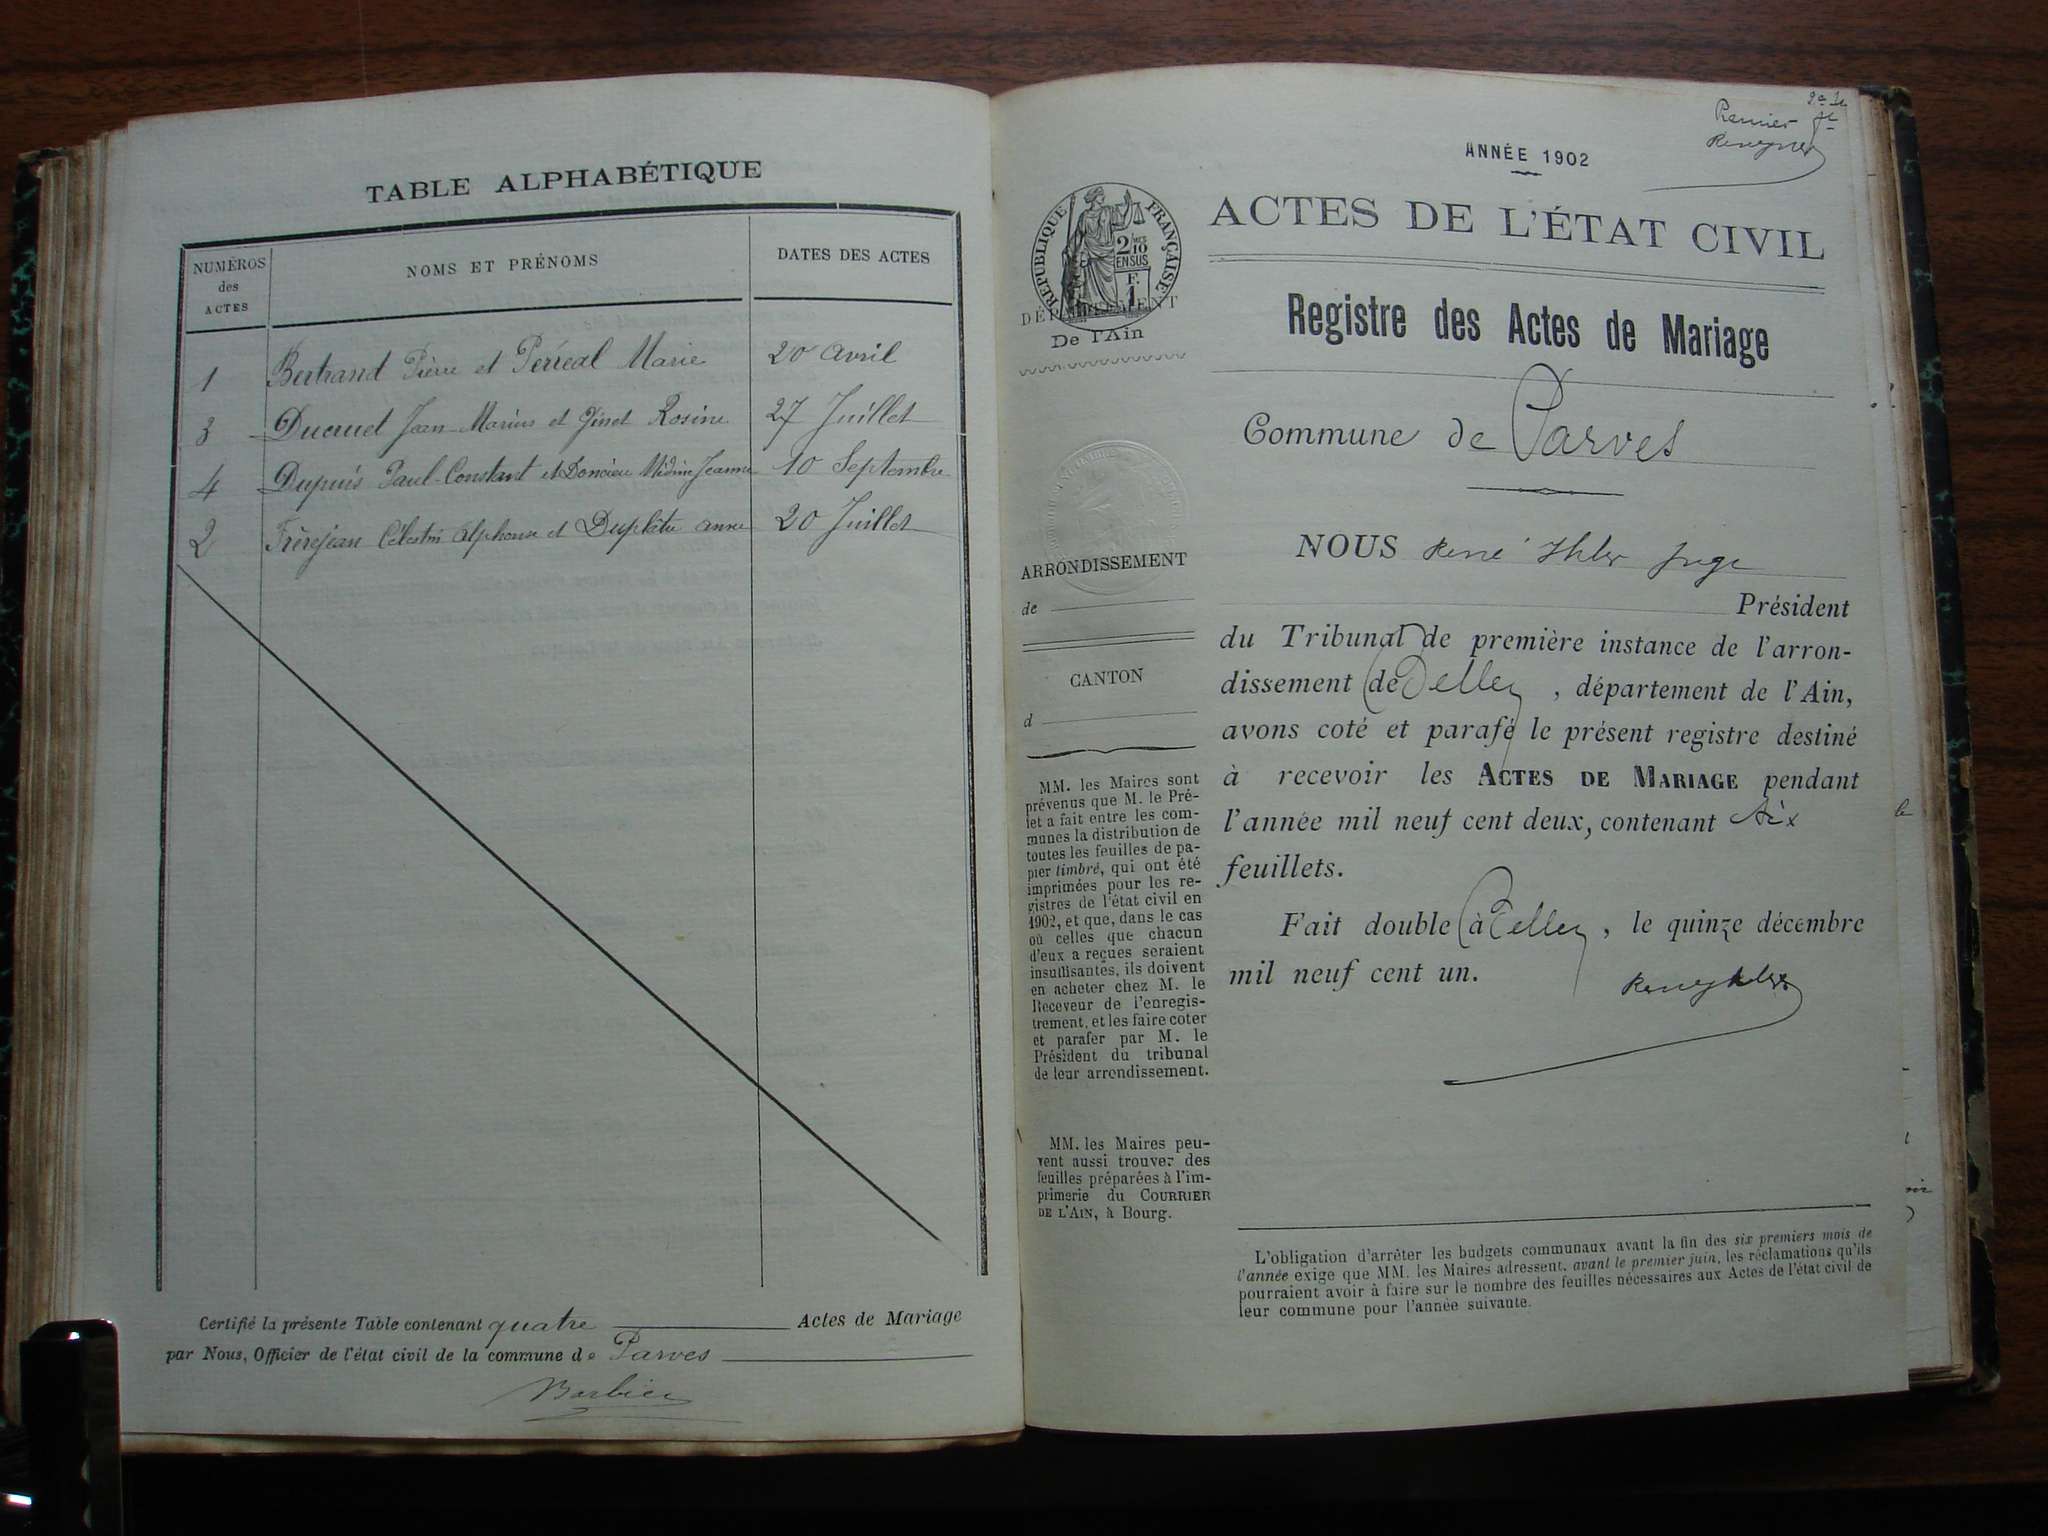 TABLE ALPHABÉTIQUE
NUMÉROS
des
ACTES
NOMS ET PRÉNOMS
DATES DES ACTES
1 Bertrand Pierre et Perréal Marie 20 avril
3 Ducruet Jean-Marius et Ginet Rosine 27 Juillet
4 Dupuis Paul-Constant et Jeanne 10 Septembre
2 Frèrejean Célestin alphonse et anne 20 Juillet
Certifié la présente Table contenant quatre Actes de Mariage
par Nous, Officier de l'état civil de la commune de Parves
Barbier
2e
Premier
ANNÉE 1902
ACTES DE L'ÉTAT CIVIL
RÉPUBLIQUE FRANÇAISE
2/10
EN SUS
F.
1
DÉPARTEMENT
De l'Ain
Registre des Actes de Mariage
Commune de Parves
ARRONDISSEMENT
de
CANTON
d
MM. les Maires sont
prévenus que M. le Pré-
fet a fait entre les com-
munes la distribution de
toutes les feuilles de pa-
pier timbré, qui ont été
imprimées pour les re-
gistres de l'état civil en
1902, et que, dans le cas
où celles que chacun
d'eux a reçues seraient
insuffisantes, ils doivent
en acheter chez M. le
Receveur de l'enregis-
trement, et les faire coter
et parafer par M. le
Président du tribunal
de leur arrondissement.
MM. les Maires peu-
vent aussi trouver des
feuilles préparées à l'im-
primerie du COURRIER
DE L'AIN, à Bourg.
NOUS René Ihler Juge
Président
du Tribunal de première instance de l'arron-
dissement de Belley, département de l'Ain,
avons coté et parafé le présent registre destiné
à recevoir les ACTES DE MARIAGE pendant
l'année mil neuf cent deux, contenant Six
feuillets.
Fait double à Belley, le quinze décembre
mil neuf cent un.
L'obligation d'arrêter les budgets communaux avant la fin des six premiers mois de
l'année exige que MM. les Maires adressent, avant le premier juin, les réclamations qu'ils
pourraient avoir à faire sur le nombre des feuilles nécessaires aux Actes de l'état civil de
leur commune pour l'année suivante.